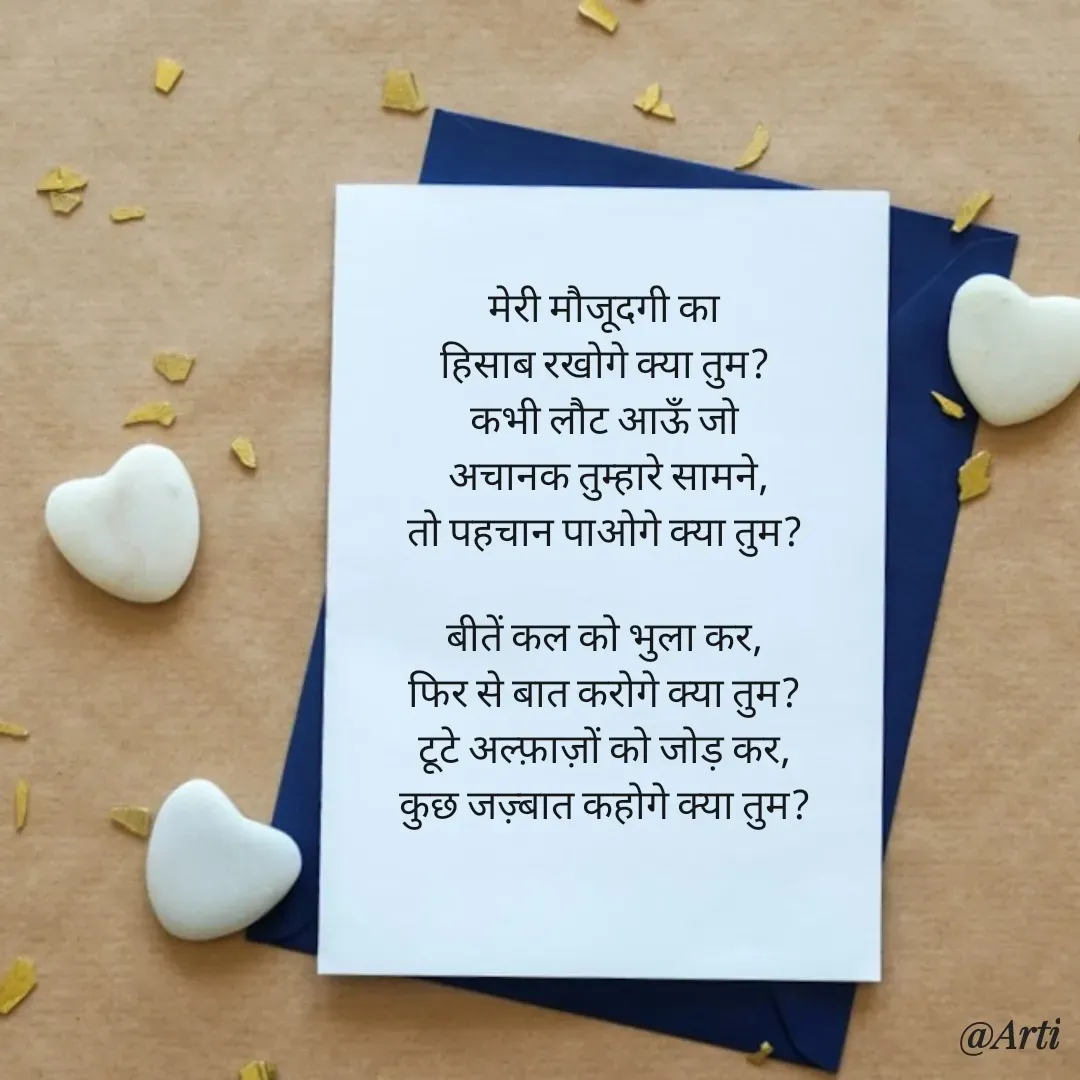 मेरी मौजूदगी का
हिसाब रखोगे क्या तुम?
कभी लौट आऊँ जो
अचानक तुम्हारे सामने,
तो पहचान पाओगे क्या तुम?
बीतें कल को भुला कर,
फिर से बात करोगे क्या तुम?
टूटे अल्फ़ाज़ों को जोड़ कर,
कुछ जज़्बात कहोगे क्या तुम?
@Arti